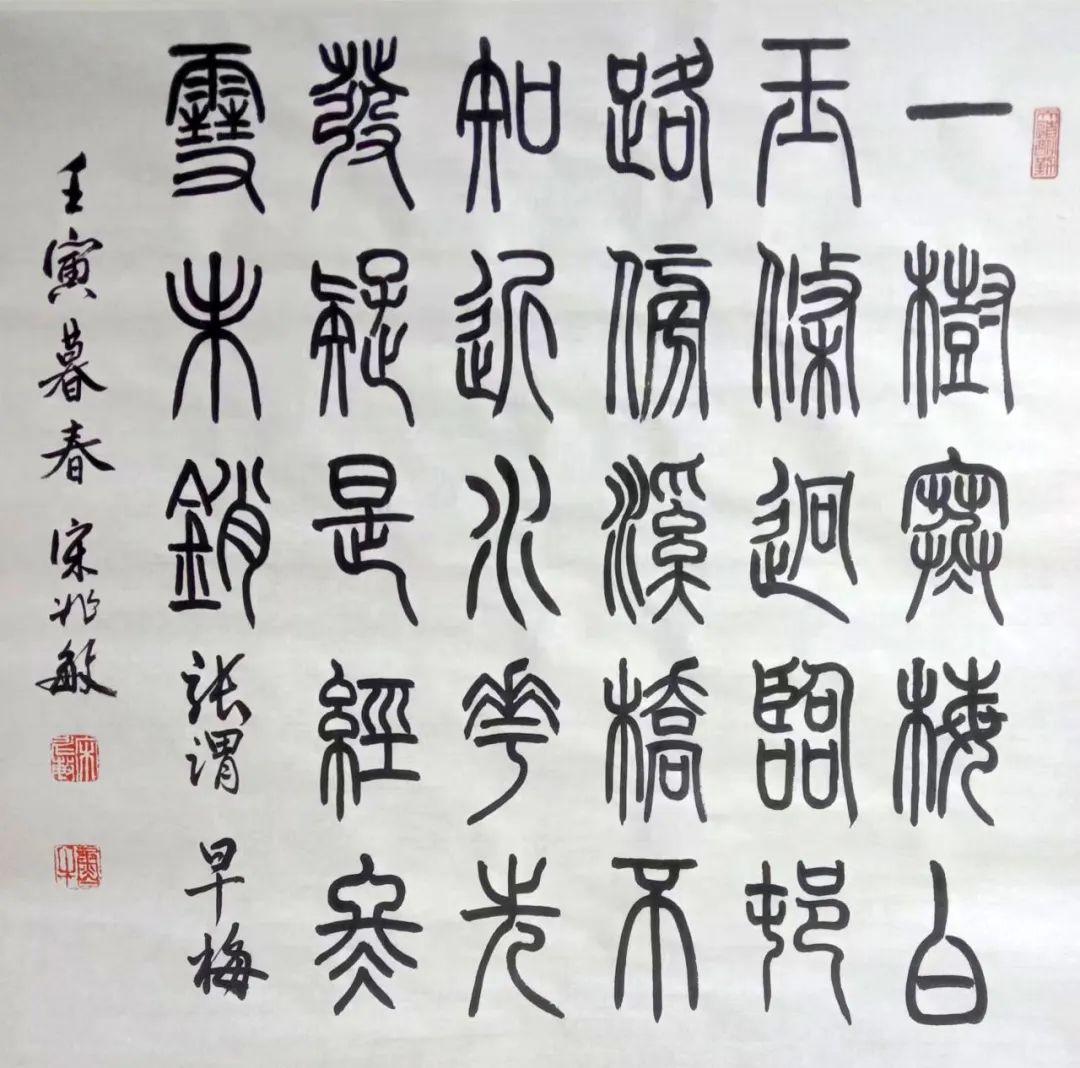 一樹寒梅白
玉條迥臨邨
路傍溪橋不
知近水花先
發疑是經冬
雪未銷 張謂 早梅
壬寅暮春 宋兆敏